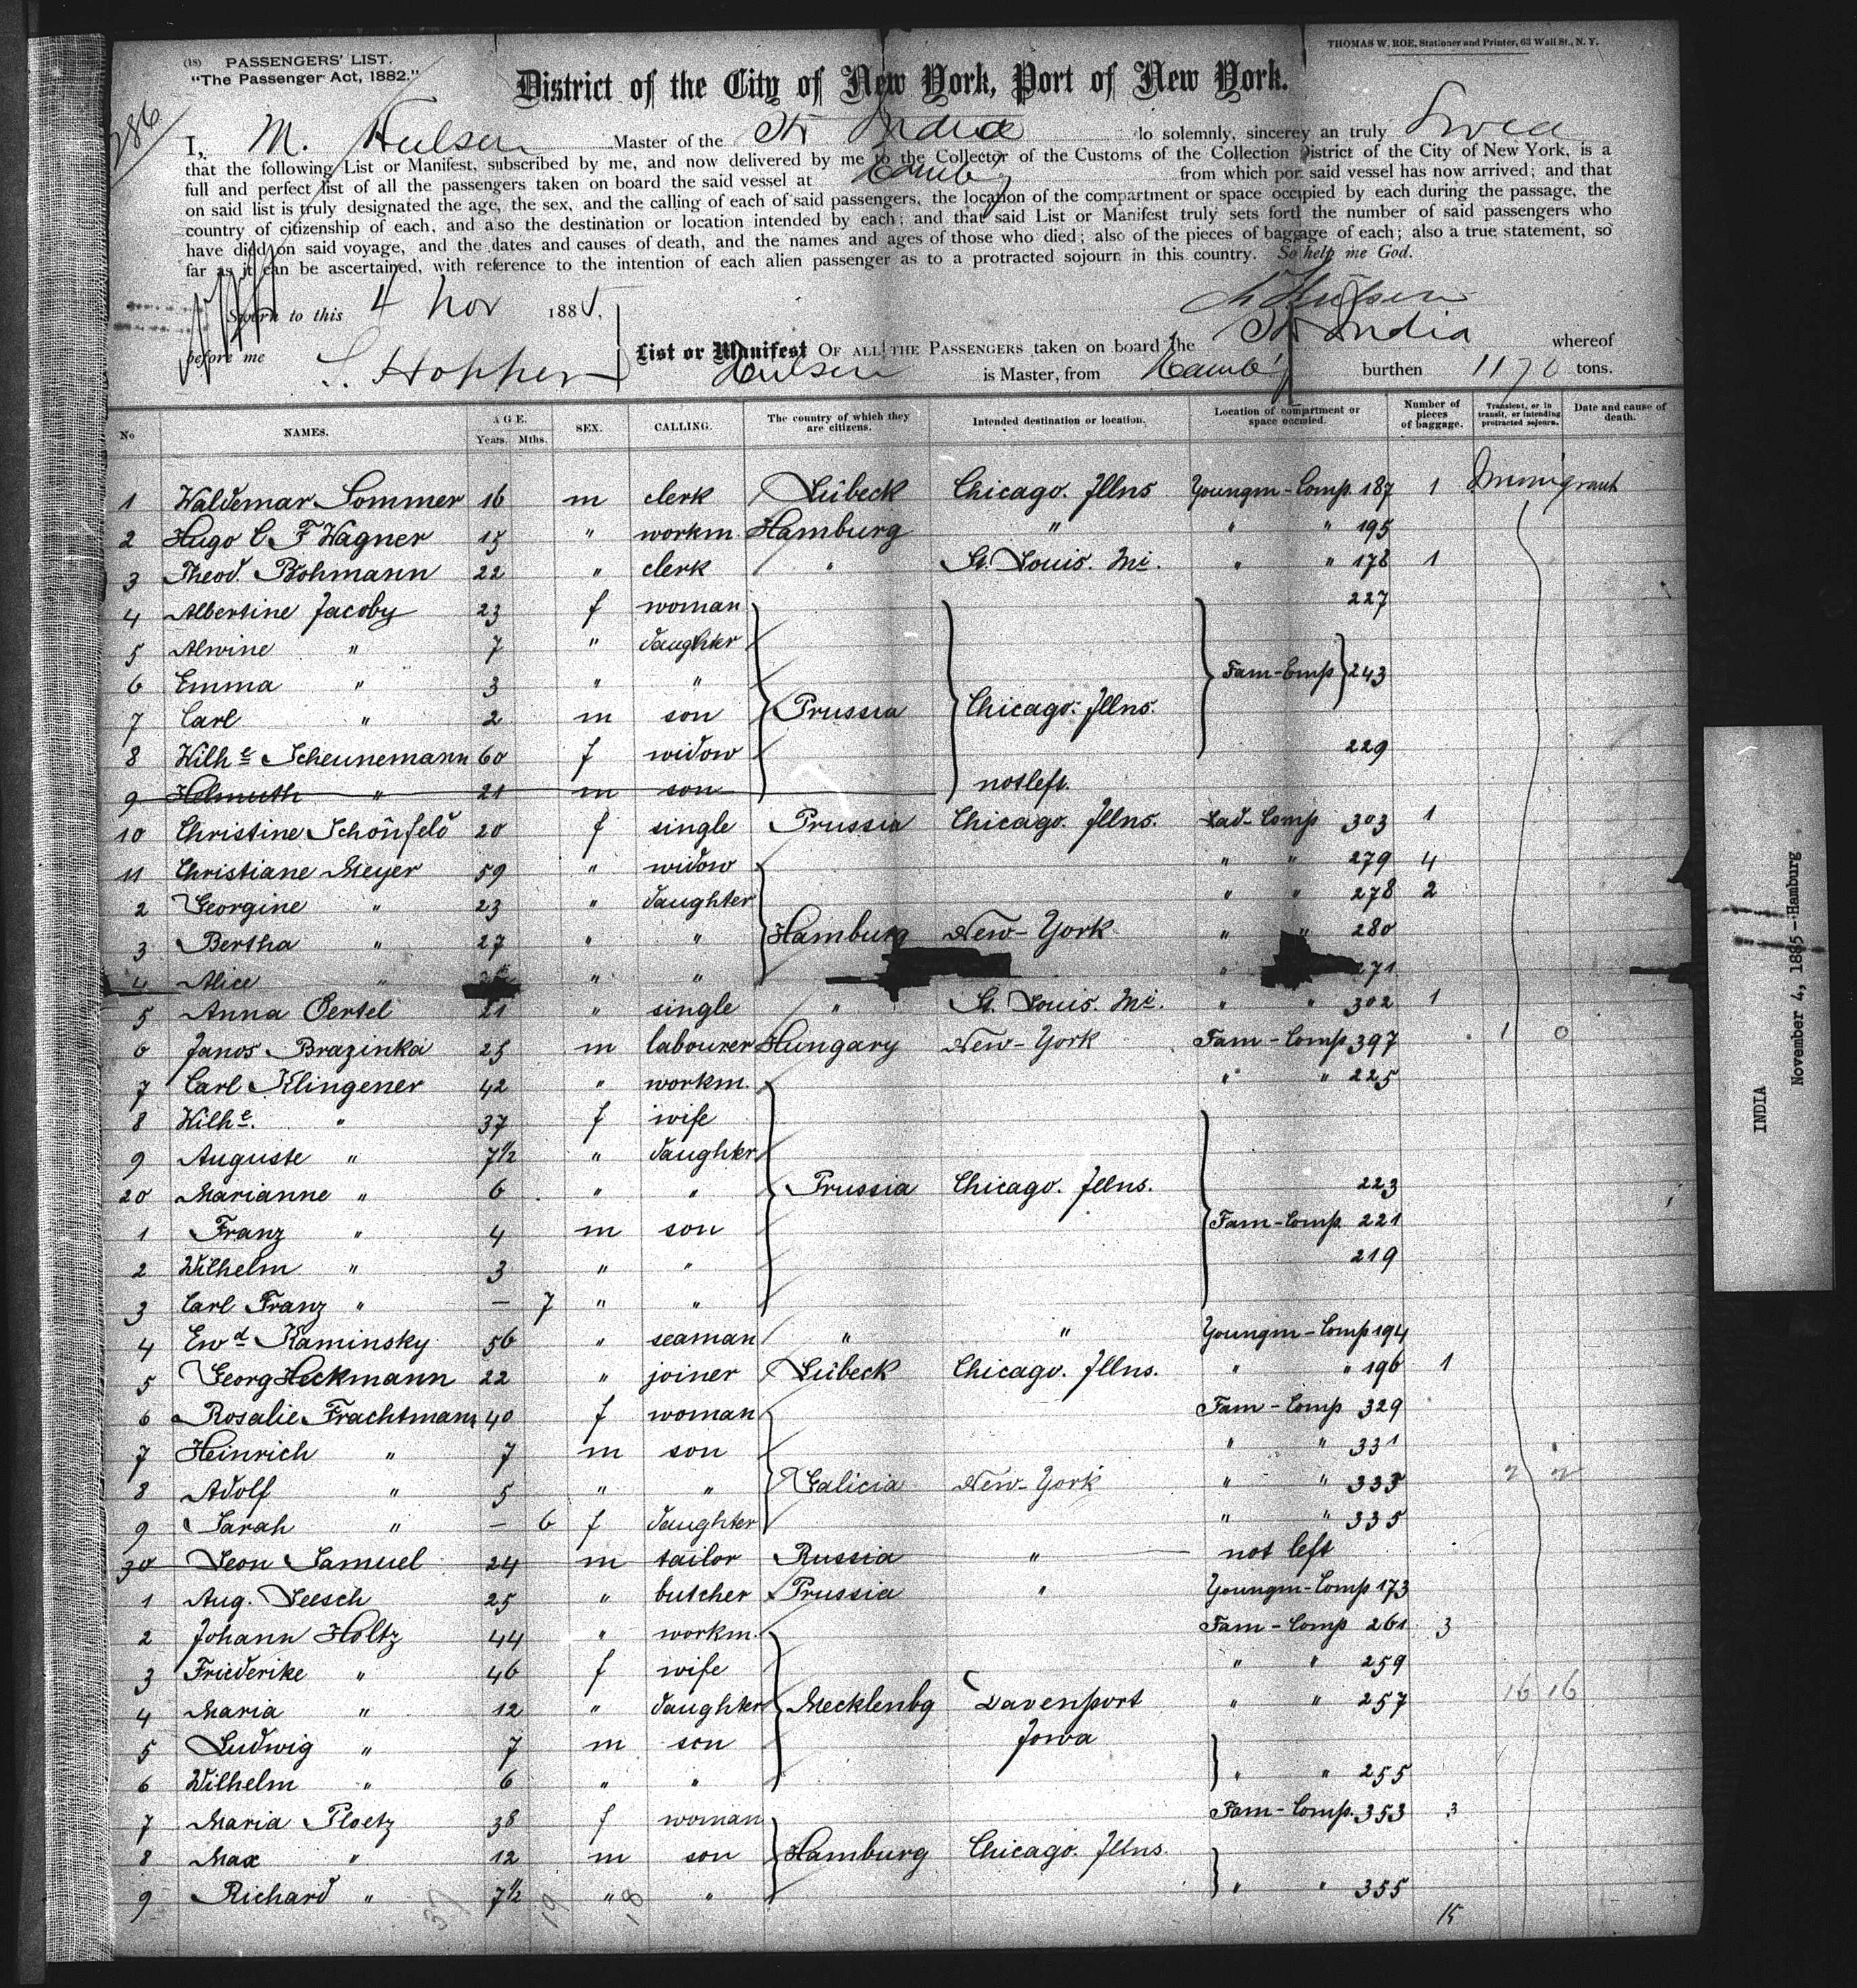 (18) PASSENGERS' LIST.
"The Passenger Act, 1882."
THOMAS W. ROE, Stationer and Printer, 63 Wall St., N. Y.
286
District of the City of New York, Port of New York.
I, M. Hulsen Master of the Str India do solemnly, sincerely an truly Swea
that the following List or Manifest, subscribed by me, and now delivered by me to the Collector of the Customs of the Collection District of the City of New York, is a
full and perfect list of all the passengers taken on board the said vessel at Hamb'g from which port said vessel has now arrived; and that
on said list is truly designated the age, the sex, and the calling of each of said passengers, the location of the compartment or space occupied by each during the passage, the
country of citizenship of each, and also the destination or location intended by each; and that said List or Manifest truly sets forth the number of said passengers who
have died on said voyage, and the dates and causes of death, and the names and ages of those who died; also of the pieces of baggage of each; also a true statement, so
far as it can be ascertained, with reference to the intention of each alien passenger as to a protracted sojourn in this country. So help me God.
Sworn to this 4 Nov 1885. M Hulsen
before me S. Hopper
List or Manifest OF ALL THE PASSENGERS taken on board the Str India whereof
Hulsen is Master, from Hamb'g burthen 1170 tons.
No NAMES. AGE. Years. Mths. SEX. CALLING. The country of which they are citizens. Intended destination or location. Location of compartment or space occupied. Number of pieces of baggage. Transient, or in transit, or intending protracted sojourn. Date and cause of death.
1 Waldemar Sommer 16 m clerk Lübeck Chicago. Jllns Youngm-Comp. 187 1 Immigrant
2 Hugo C. F Wagner 15 " workm. Hamburg " " " 195
3 Theod. Bohmann 22 " clerk " St. Louis. Mi. " " 178 1
4 Albertine Jacoby 23 f woman 227
5 Alwine " 7 " daughter
6 Emma " 3 " " Fam-Comp 243
7 Carl " 2 m son Prussia Chicago. Jllns.
8 Wilhe Scheunemann 60 f widow 229
9 Helmuth " 21 m son not left.
10 Christine Schönfeld 20 f single Prussia Chicago. Jllns. Lad-Comp 303 1
11 Christiane Meyer 59 " widow " " 279 4
2 Georgine " 23 " daughter " " 278 2
3 Bertha " 27 " " Hamburg New-York " " 280
4 Alice " " " " 271
5 Anna Oertel 21 " single " St. Louis. Mi. " " 302 1
6 Janos Brazinka 25 m labourer Hungary New-York Fam-Comp 397 1 0
7 Carl Klingener 42 " workm. " " 225
8 Wilhe. " 37 f wife
9 Auguste " 7½ " daughter
20 Marianne " 6 " " Prussia Chicago. Jllns. 223
1 Franz " 4 m son Fam-Comp. 221
2 Wilhelm " 3 " " 219
3 Carl Franz " — 7 " "
4 Ewd Kaminsky 56 " seaman " " Youngm-Comp 194
5 Georg Heckmann 22 " joiner Lübeck Chicago. Jllns. " " 196 1
6 Rosalie Frachtmann 40 f woman Fam-Comp 329
7 Heinrich " 7 m son " " 331
8 Adolf " 5 " " Galicia New-York " " 333 2 2
9 Sarah " — 6 f daughter " " 335
30 Leon Samuel 24 m tailor Russia " not left
1 Aug. Leesch 25 " butcher Prussia " Youngm-Comp 173
2 Johann Holtz 44 " workm. Fam-Comp 261 3
3 Friederike " 46 f wife " " 259
4 Maria " 12 " daughter Mecklenbg Davenport " " 257 16 16
5 Ludwig " 7 m son Jowa
6 Wilhelm " 6 " " " " 255
7 Maria Ploetz 38 f woman Fam-Comp. 353 3
8 Max " 12 m son Hamburg Chicago. Jllns.
9 Richard " 7½ " " " " 355
37 19 18 15
INDIA
November 4, 1885--Hamburg